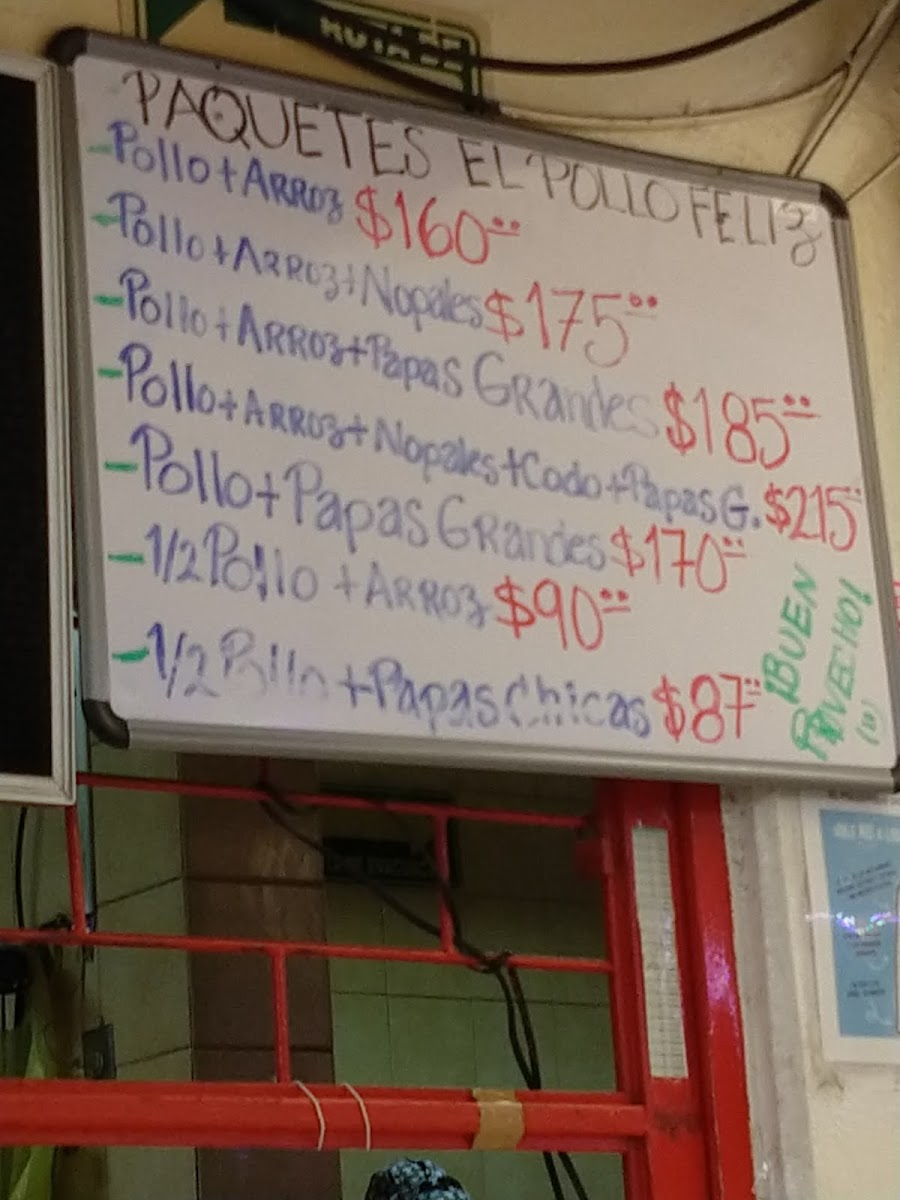 RUTA DE
PAQUETES EL POLLO FELIZ
-Pollo+ARROz $160.00
-Pollo+ARROz+Nopales $175.00
-Pollo+ARROz+Papas GRandes $185.00
-Pollo+ARROz+Nopales+Codo+Papas G. $215
-Pollo+Papas GRandes $170.00
-1/2 Pollo +ARROz $90.00
-1/2 Pollo +Papas Chicas $87.00
¡BUEN
PROVECHO!